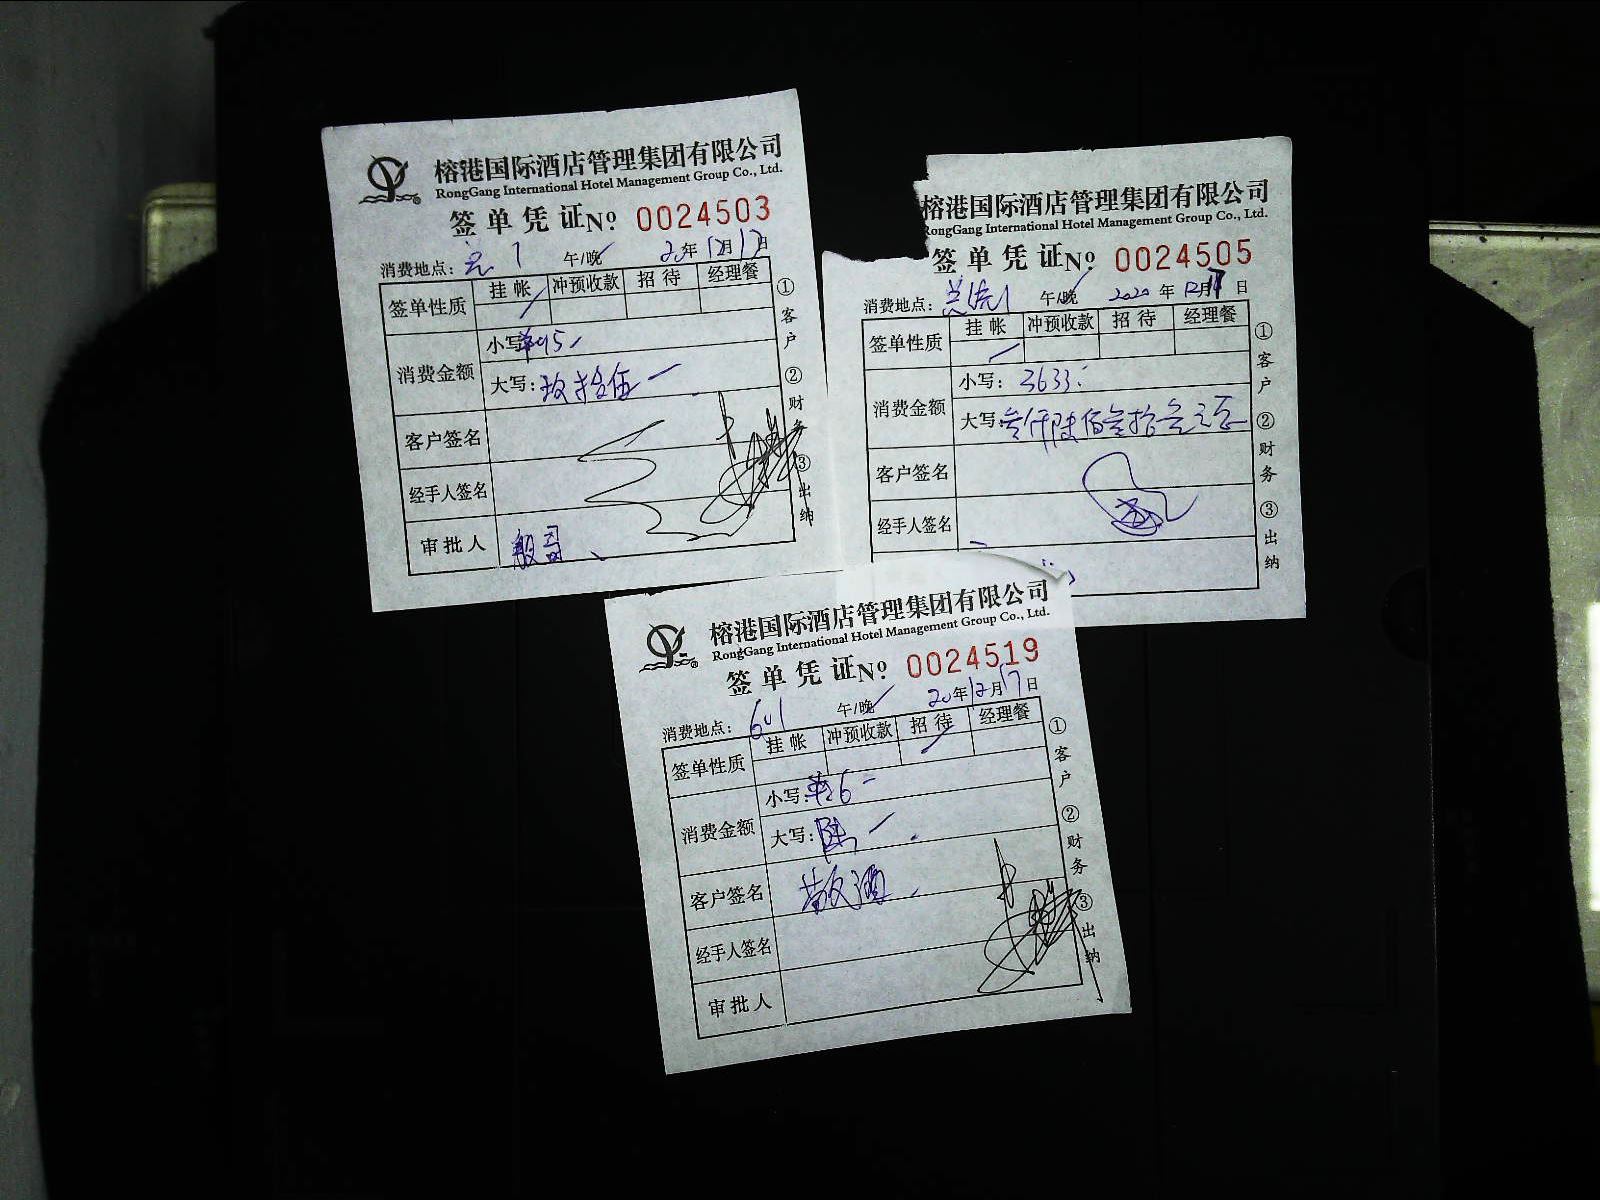 榕港国际酒店管理集团有限公司
RongGang International Hotel Management Group Co., Ltd.
签单凭证 Nº 0024503
消费地点: 1 午/晚 20年12月17日
签单性质 挂帐 冲预收款 招待 经理餐
消费金额 小写: 95
大写: 玖拾伍
客户签名
经手人签名
审批人
①客户 ②财务 ③出纳
榕港国际酒店管理集团有限公司
RongGang International Hotel Management Group Co., Ltd.
签单凭证 Nº 0024505
消费地点: 午/晚 2020年12月17日
签单性质 挂帐 冲预收款 招待 经理餐
消费金额 小写: 3633
大写: 叁仟陆佰叁拾叁元正
客户签名
经手人签名
①客户 ②财务 ③出纳
榕港国际酒店管理集团有限公司
RongGang International Hotel Management Group Co., Ltd.
签单凭证 Nº 0024519
消费地点: 601 午/晚 20年12月17日
签单性质 挂帐 冲预收款 招待 经理餐
消费金额 小写: 6
大写: 陆
客户签名 散酒
经手人签名
审批人
①客户 ②财务 ③出纳